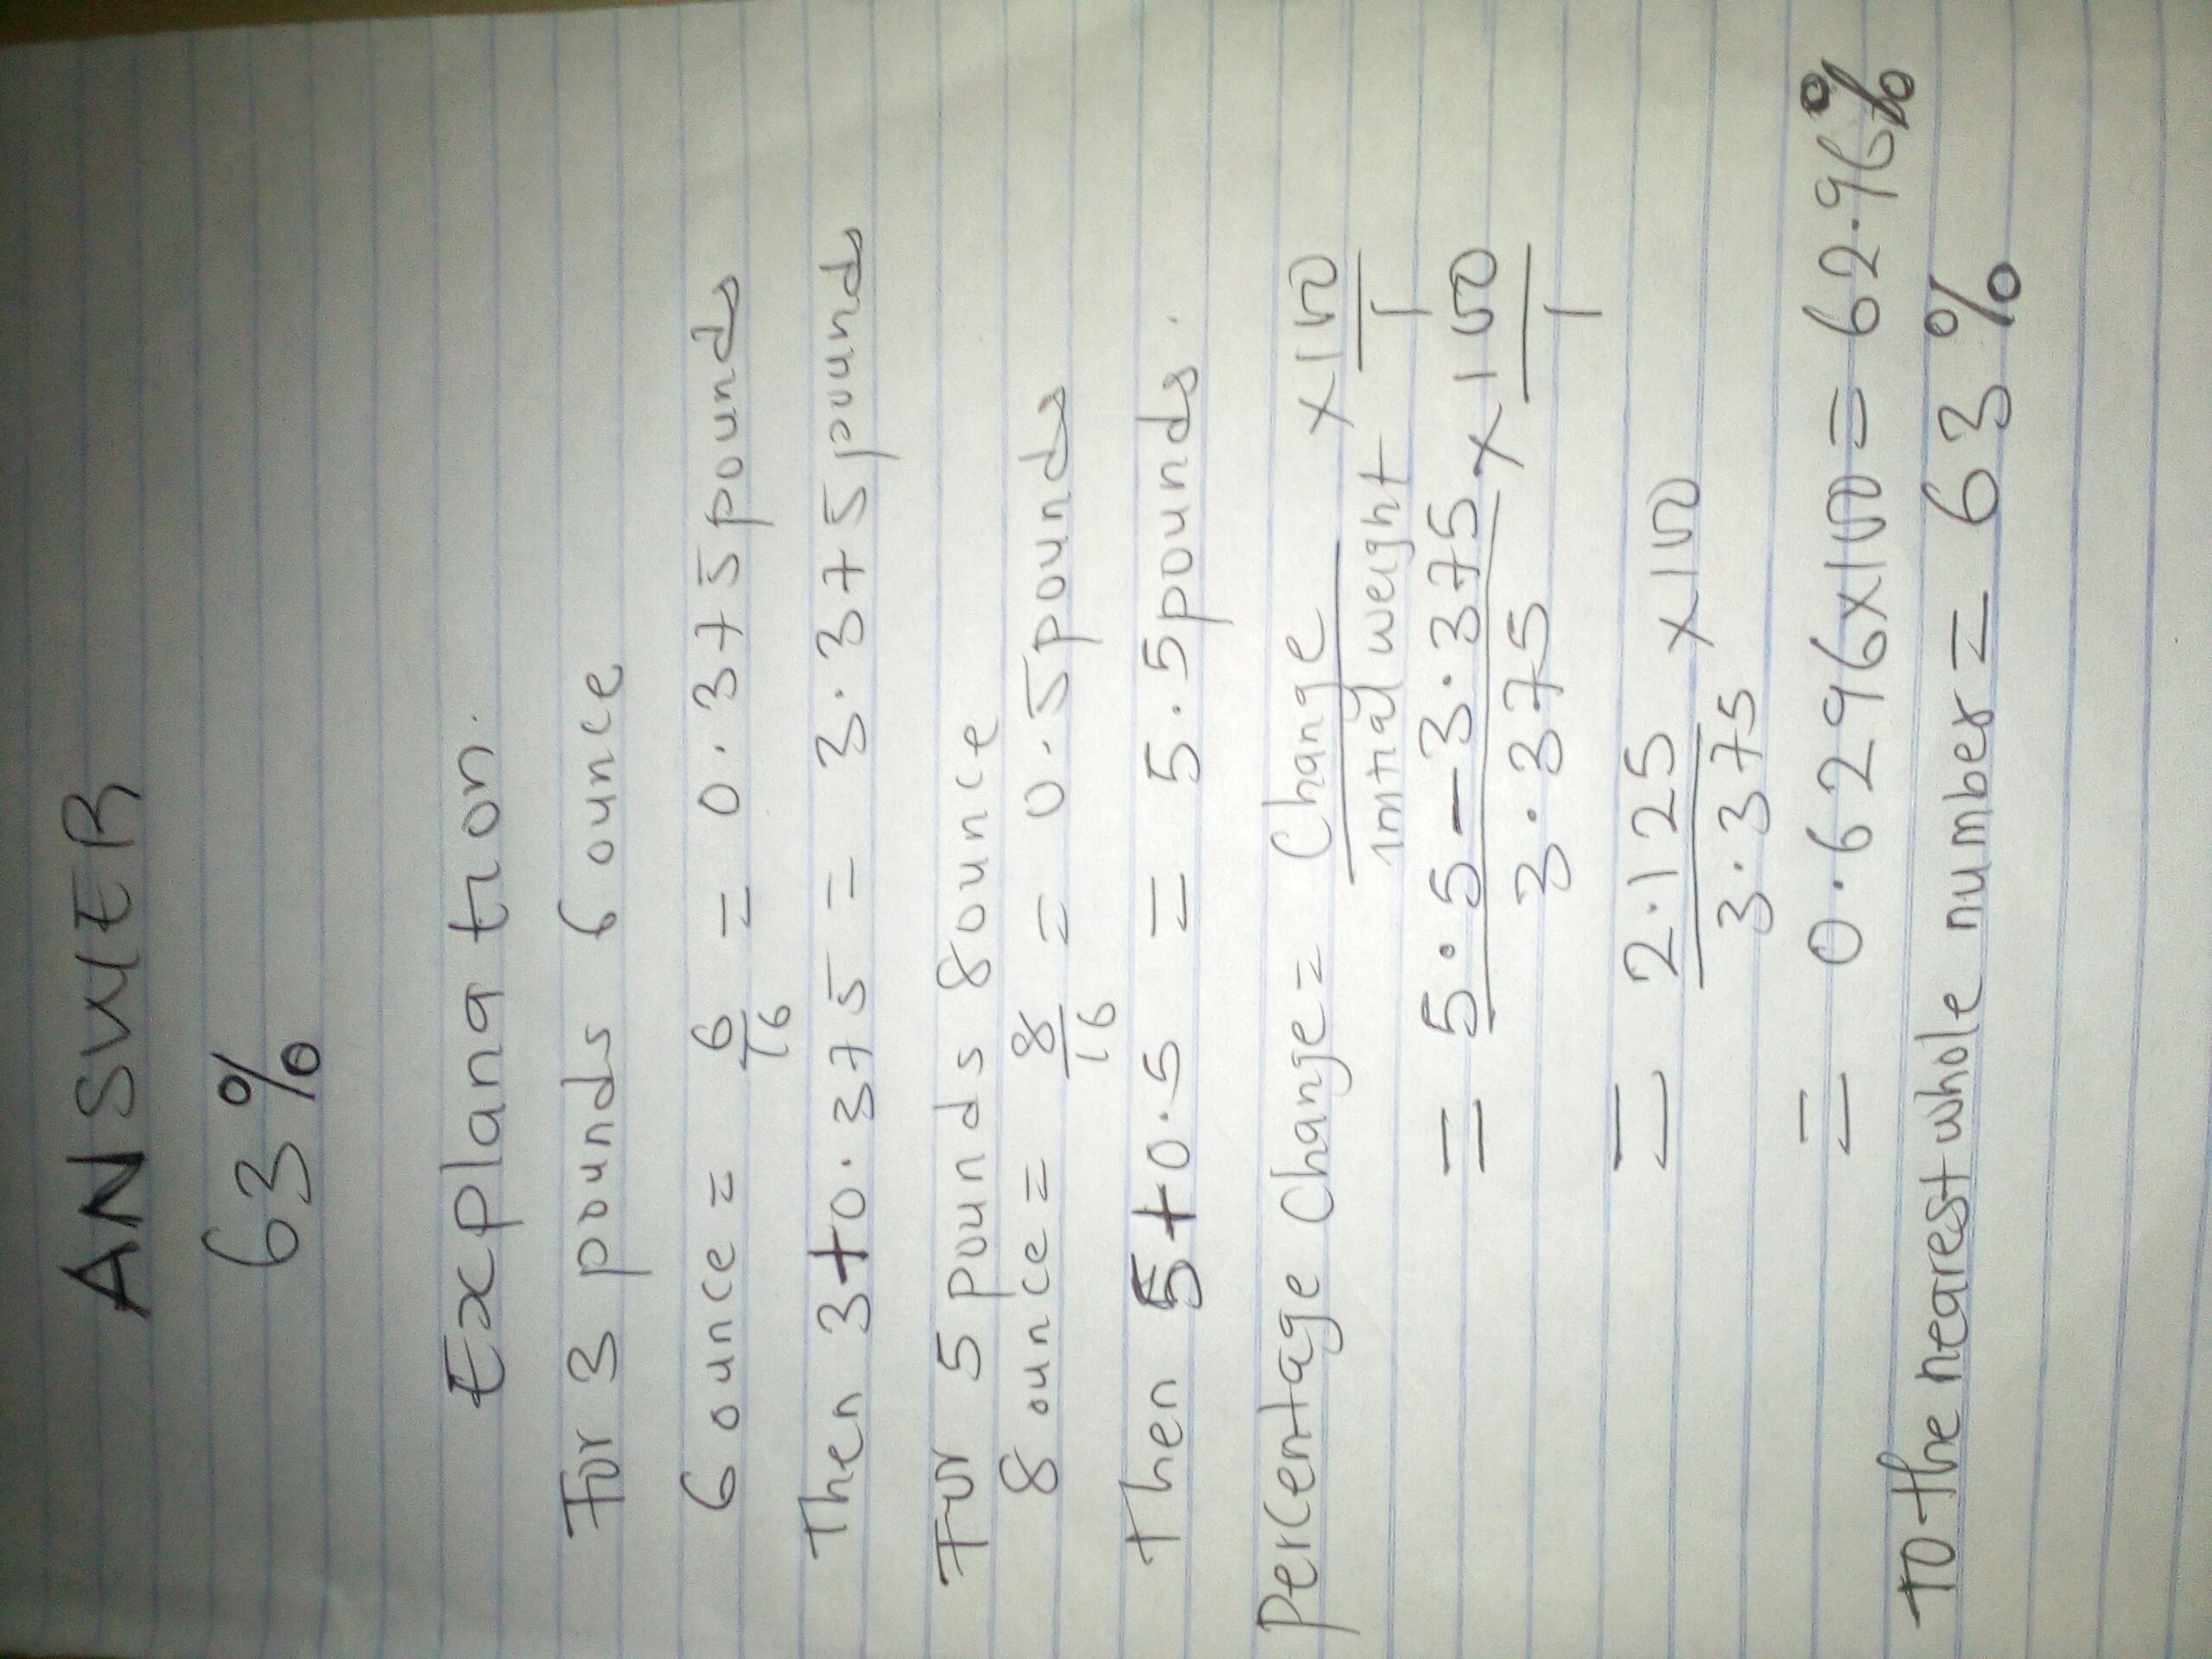 ANSWER
63%
Explanation.
For 3 pounds 6 ounce
6 ounce = 6/16 = 0.375 pounds
Then 3+0.375 = 3.375 pounds
For 5 pounds 8 ounce
8 ounce = 8/16 = 0.5 pounds
Then 5+0.5 = 5.5 pounds.
Percentage Change = Change/initial weight × 100/1
= 5.5-3.375/3.375 × 100/1
= 2.125/3.375 × 100
= 0.6296×100 = 62.96%
To the nearest whole number = 63%